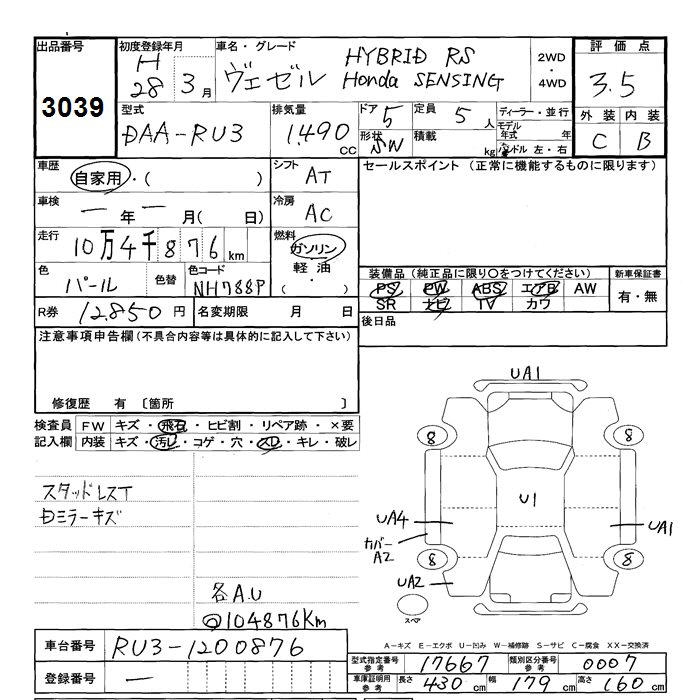 出品番号 初度登録年月 車名・グレード 2WD・4WD 評価点
3039 H28 3月 ヴェゼル HYBRID RS 3.5
Honda SENSING
型式 排気量 ドア 定員 ディーラー・並行 外装 内装
DAA-RU3 1,490 cc 5 5人 モデル年式 年 C B
形状 SW 積載 kg ハンドル 左・右
車歴 自家用・( ) シフト AT セールスポイント (正常に機能するものに限ります)
車検 ー年ー月( 日) 冷房 AC
走行 10万4千876km 燃料 ガソリン
軽油
( ・ )
色 パール 色替 色コード NH788P 装備品(純正品に限り○をつけてください) 新車保証書
PS PW ABS エアB AW 有・無
SR ナビ TV カワ
R券 12,850円 名変期限 月 日 後日品
注意事項申告欄(不具合内容等は具体的に記入して下さい)
修復歴 有 〔箇所 〕
検査員 FW キズ・飛石・ヒビ割・リペア跡・×要
記入欄 内装 キズ・汚レ・コゲ・穴・スレ・キレ・破レ
スタッドレスT
Dミラーキズ
各A.U
@104876Km
UA1
8 8
U1
UA4 UA1
カバーA2
8 8
UA2
スペア
A-キズ E-エクボ U-凹み W-補修跡 S-サビ C-腐食 XX-交換済
車台番号 RU3-1200876 型式指定番号 参考 17667 類別区分番号 参考 0007
登録番号 ー 車庫証明用 参考 長さ 430cm 幅 179cm 高さ 160cm